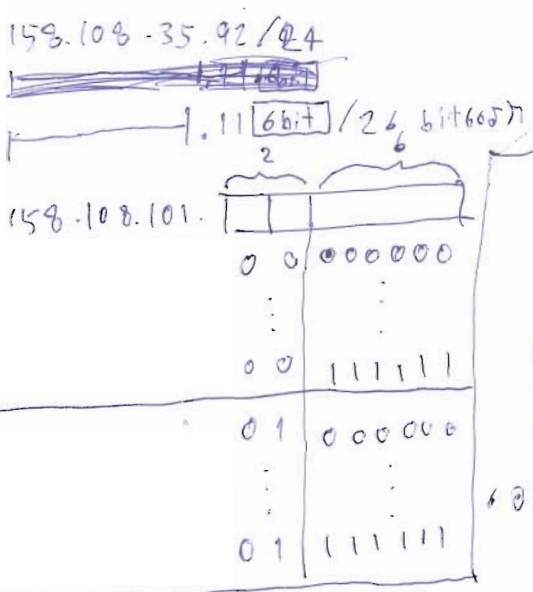 158.108.35.92/24
.11 6bit /26 bit
2 6
158.108.101.
0 0 000000
0 0 111111
0 1 000000
0 1 111111